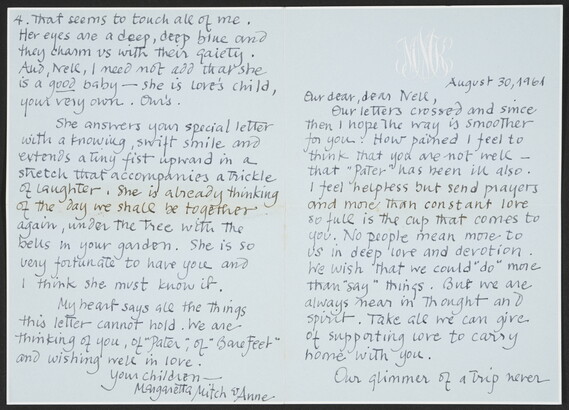 4. That seems to touch all of me.
Her eyes are a deep, deep blue and
they charm us with their gaiety.
And, Nell, I need not add that she
is a good baby — she is love's child,
your very own. Ours.
She answers your special letter
with a knowing, swift smile and
extends a tiny fist upward in a
stretch that accompanies a trickle
of laughter. She is already thinking
of the day we shall be together
again, under the tree with the
bells in your garden. She is so
very fortunate to have you and
I think she must know it.
My heart says all the things
this letter cannot hold. We are
thinking of you, of "Pater", of "Bare Feet"
and wishing well in love.
Your children —
Margaretta, Mitch & Anne
August 30, 1961
Our dear, dear Nell,
Our letters crossed and since
then I hope the way is smoother
for you. How pained I feel to
think that you are not well —
that "Pater" has been ill also.
I feel helpless but send prayers
and more than constant love
so full is the cup that comes to
you. No people mean more to
us in deep love and devotion.
We wish that we could "do" more
than "say" things. But we are
always near in thought and
spirit. Take all we can give
of supporting love to carry
home with you.
Our glimmer of a trip never